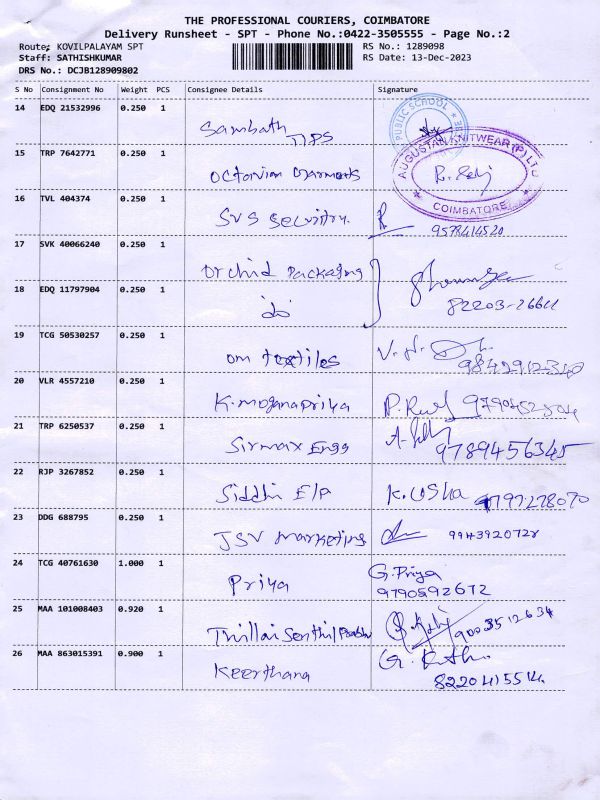 THE PROFESSIONAL COURIERS, COIMBATORE
Delivery Runsheet - SPT - Phone No.:0422-3505555 - Page No.:2
Route: KOVILPALAYAM SPT
RS No.: 1289098
Staff: SATHISHKUMAR
RS Date: 13-Dec-2023
DRS No.: DCJB128909802
S No Consignment No Weight PCS Consignee Details Signature
14 EDQ 21532996 0.250 1
Sambath TIPS
PUBLIC SCHOOL
15 TRP 7642771 0.250 1
Octovian Garments
AUGUSTAN KNITWEAR (P) LTD
COIMBATORE
16 TVL 404374 0.250 1
SVS Security. R
9578414520
17 SVK 40066240 0.250 1
Orchid Packaging
18 EDQ 11797904 0.250 1
do
82203-26611
19 TCG 50530257 0.250 1
om textiles
20 VLR 4557210 0.250 1
K.moganapriya
21 TRP 6250537 0.250 1
Sirmax Engg 9789456345
22 RJP 3267852 0.250 1
Siddhi E/P K.USha 9797278070
23 DDG 688795 0.250 1
JSV marketing 9943920728
24 TCG 40761630 1.000 1
Priya G.Priya
9790592672
25 MAA 101008403 0.920 1
Thillai Senthil Prabhu 9003512634
26 MAA 863015391 0.900 1
Keerthana
8220415514